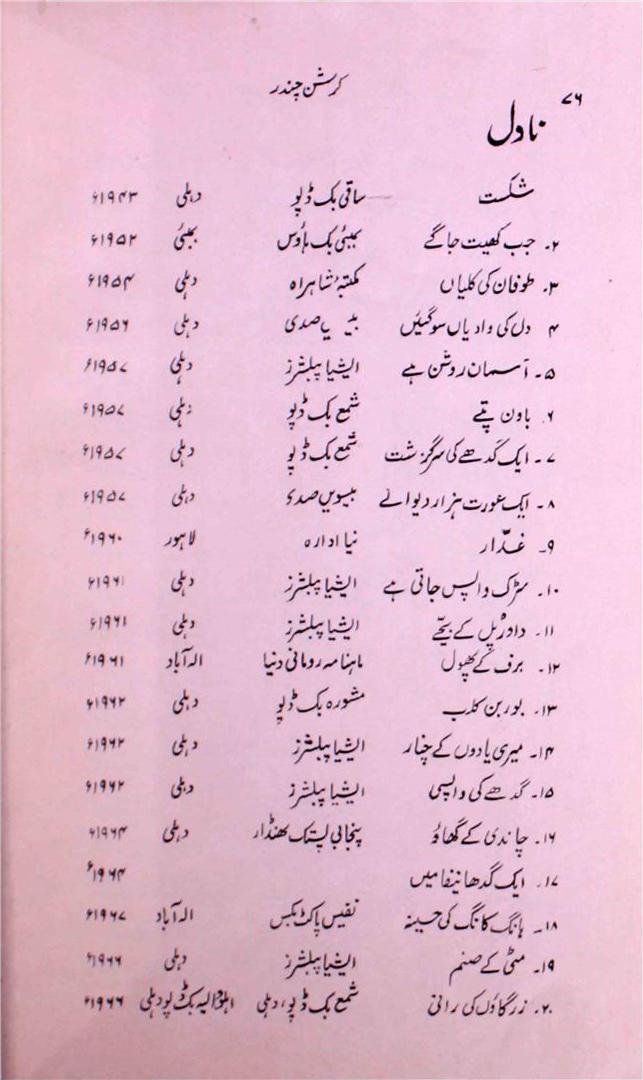 ۷۶
کرشن چندر
ناول
شکست ساقی بک ڈپو دہلی ۱۹۴۳ء
۲۔ جب کھیت جاگے بمبئی بک ہاؤس بمبئی ۱۹۵۲ء
۳۔ طوفان کی کلیاں مکتبۂ شاہراہ دہلی ۱۹۵۴ء
۴ دل کی وادیاں سوگئیں بیسویں صدی دہلی ۱۹۵۶ء
۵۔ آسمان روشن ہے ایشیا پبلشرز دہلی ۱۹۵۷ء
۶۔ باون پتے شمع بک ڈپو دہلی ۱۹۵۷ء
۷۔ ایک گدھے کی سرگزشت شمع بک ڈپو دہلی ۱۹۵۷ء
۸۔ ایک عورت ہزار دیوانے بیسویں صدی دہلی ۱۹۵۷ء
۹۔ غدّار نیا ادارہ لاہور ۱۹۶۰ء
۱۰۔ سڑک واپس جاتی ہے ایشیا پبلشرز دہلی ۱۹۶۱ء
۱۱۔ دادر پُل کے بچّے ایشیا پبلشرز دہلی ۱۹۶۱ء
۱۲۔ برف کے پھول ماہنامہ رومانی دنیا الہ آباد ۱۹۶۱ء
۱۳۔ بوربن کلب مشورہ بک ڈپو دہلی ۱۹۶۲ء
۱۴۔ میری یادوں کے چنار ایشیا پبلشرز دہلی ۱۹۶۲ء
۱۵۔ گدھے کی واپسی ایشیا پبلشرز دہلی ۱۹۶۲ء
۱۶۔ چاندی کے گھاؤ پنجابی پستک بھنڈار دہلی ۱۹۶۴ء
۱۷۔ ایک گدھا نیفا میں ۱۹۶۴ء
۱۸۔ ہانگ کانگ کی حسینہ نفیس پاکٹ بکس الہ آباد ۱۹۶۷ء
۱۹۔ مٹی کے صنم ایشیا پبلشرز دہلی ۱۹۶۶ء
۲۰۔ زرگاؤں کی رانی شمع بک ڈپو، دہلی اہلووالیہ بک ڈپو دہلی ۱۹۶۶ء